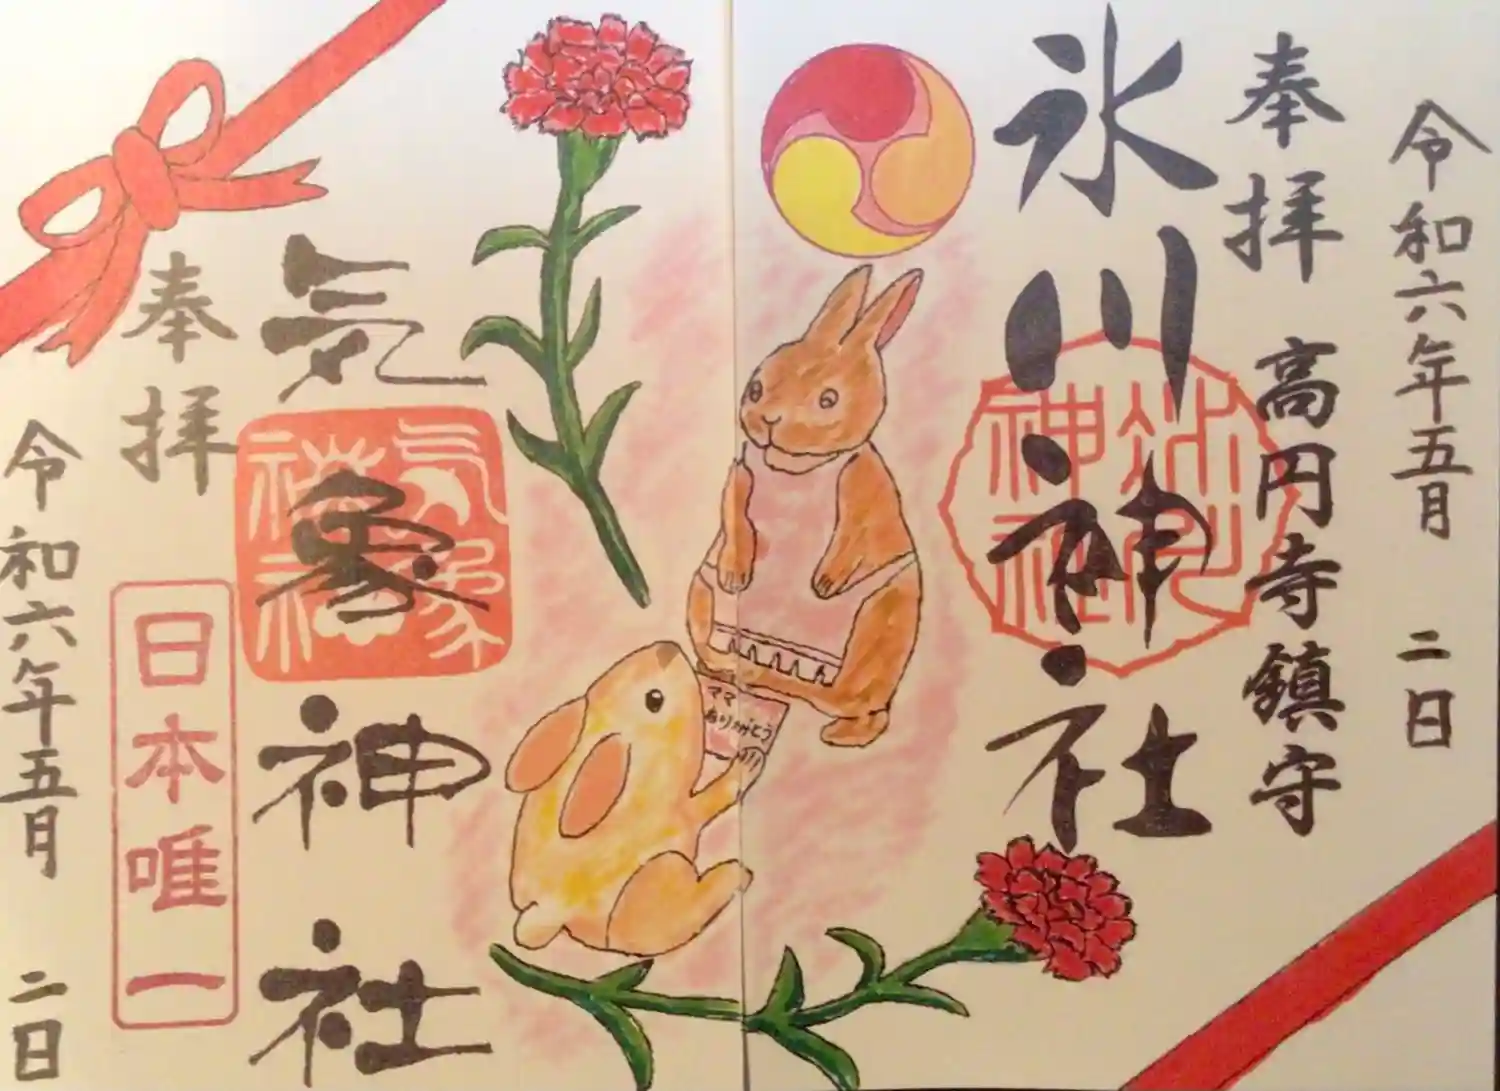 令和六年五月二日
奉拝
高円寺鎮守
氷川神社
氷川神社
ママ
ありがとう
気象神社
気象神社
奉拝
日本唯一
令和六年五月二日